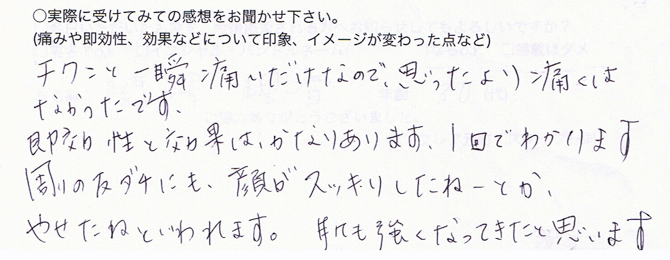 ○実際に受けてみての感想をお聞かせ下さい。
(痛みや即効性、効果などについて印象、イメージが変わった点など)
チクンと一瞬痛いだけなので、思ったより痛くは
なかったです、
即効性と効果は、かなりあります、1回でわかります
周りの友ダチにも、顔がスッキリしたねーとか、
やせたねといわれます。肌も強くなってきたと思います